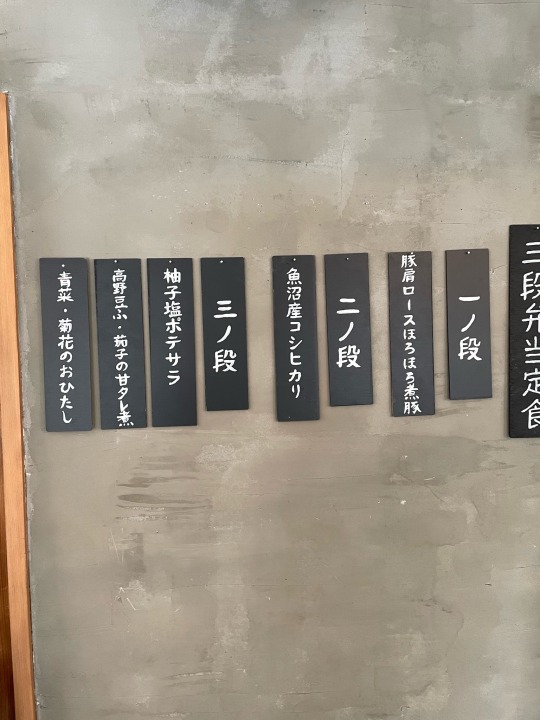 三段弁当定食
一ノ段
豚肩ロースほろほろ煮豚
二ノ段
魚沼産コシヒカリ
三ノ段
柚子塩ポテサラ
高野豆ふ・茄子の甘タレ煮
青菜・菊花のおひたし